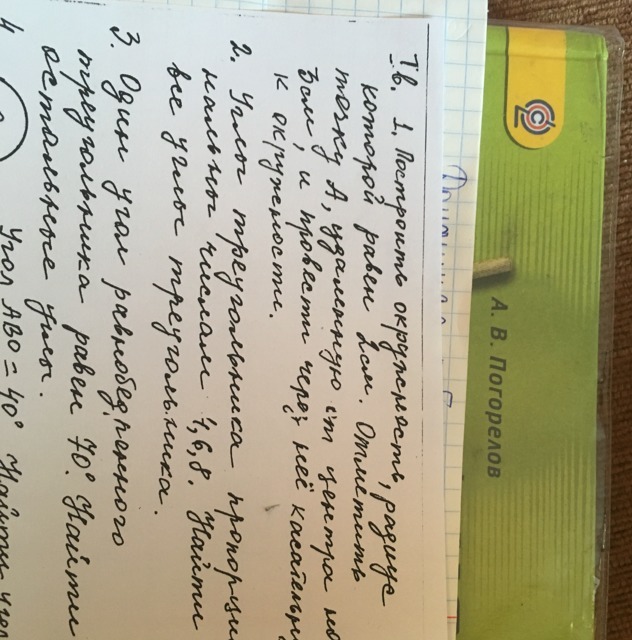 Iв. 1. Построить окружность, радиус
которой равен 2см. Отметить
точку А, удаленную от центра на
и провести через неё
к окружности.
2. Углы треугольника
числам 4,6,8. Найти
все углы треугольника.
3. Один угол равнобедренного
треугольника равен 70°. Найти
остальные углы.
4 Угол АВО = 40° Найти
А. В. Погорелов